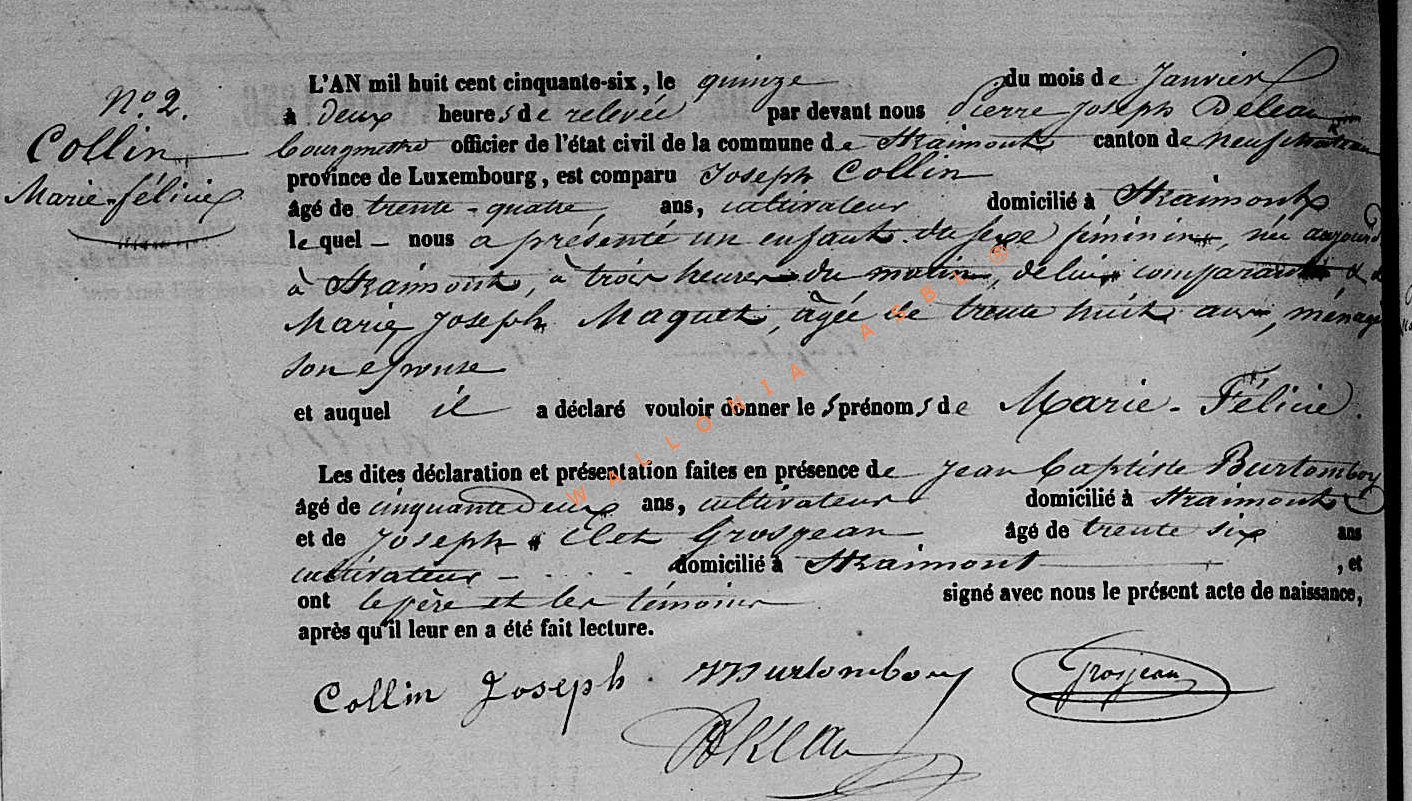 N° 2.
Collin
Marie-félicie
L'AN mil huit cent cinquante-six, le quinze du mois de Janvier
à deux heures de relevée par devant nous Pierre Joseph Deleau
bourgmestre officier de l'état civil de la commune de Straimont canton de neufchâteau
province de Luxembourg, est comparu Joseph Collin
âgé de trente-quatre, ans, cultivateur domicilié à Straimont
le quel - nous a présenté un enfant du sexe féminin, née aujourd
à Straimont, à trois heures du matin, de lui comparant &
Marie Joseph Maquet, âgée de trente huit ans, ménag
son épouse
et auquel il a déclaré vouloir donner les prénoms de Marie-Félicie.
Les dites déclaration et présentation faites en présence de Jean Baptiste Burtomboy
âgé de cinquante deux ans, cultivateur domicilié à Straimont
et de Joseph Elet Grosjean âgé de trente six ans
cultivateur - domicilié à Straimont, et
ont le père et les témoins signé avec nous le présent acte de naissance,
après qu'il leur en a été fait lecture.
Collin Joseph. Burtomboy Grosjean
WALLONIA ASBL ®